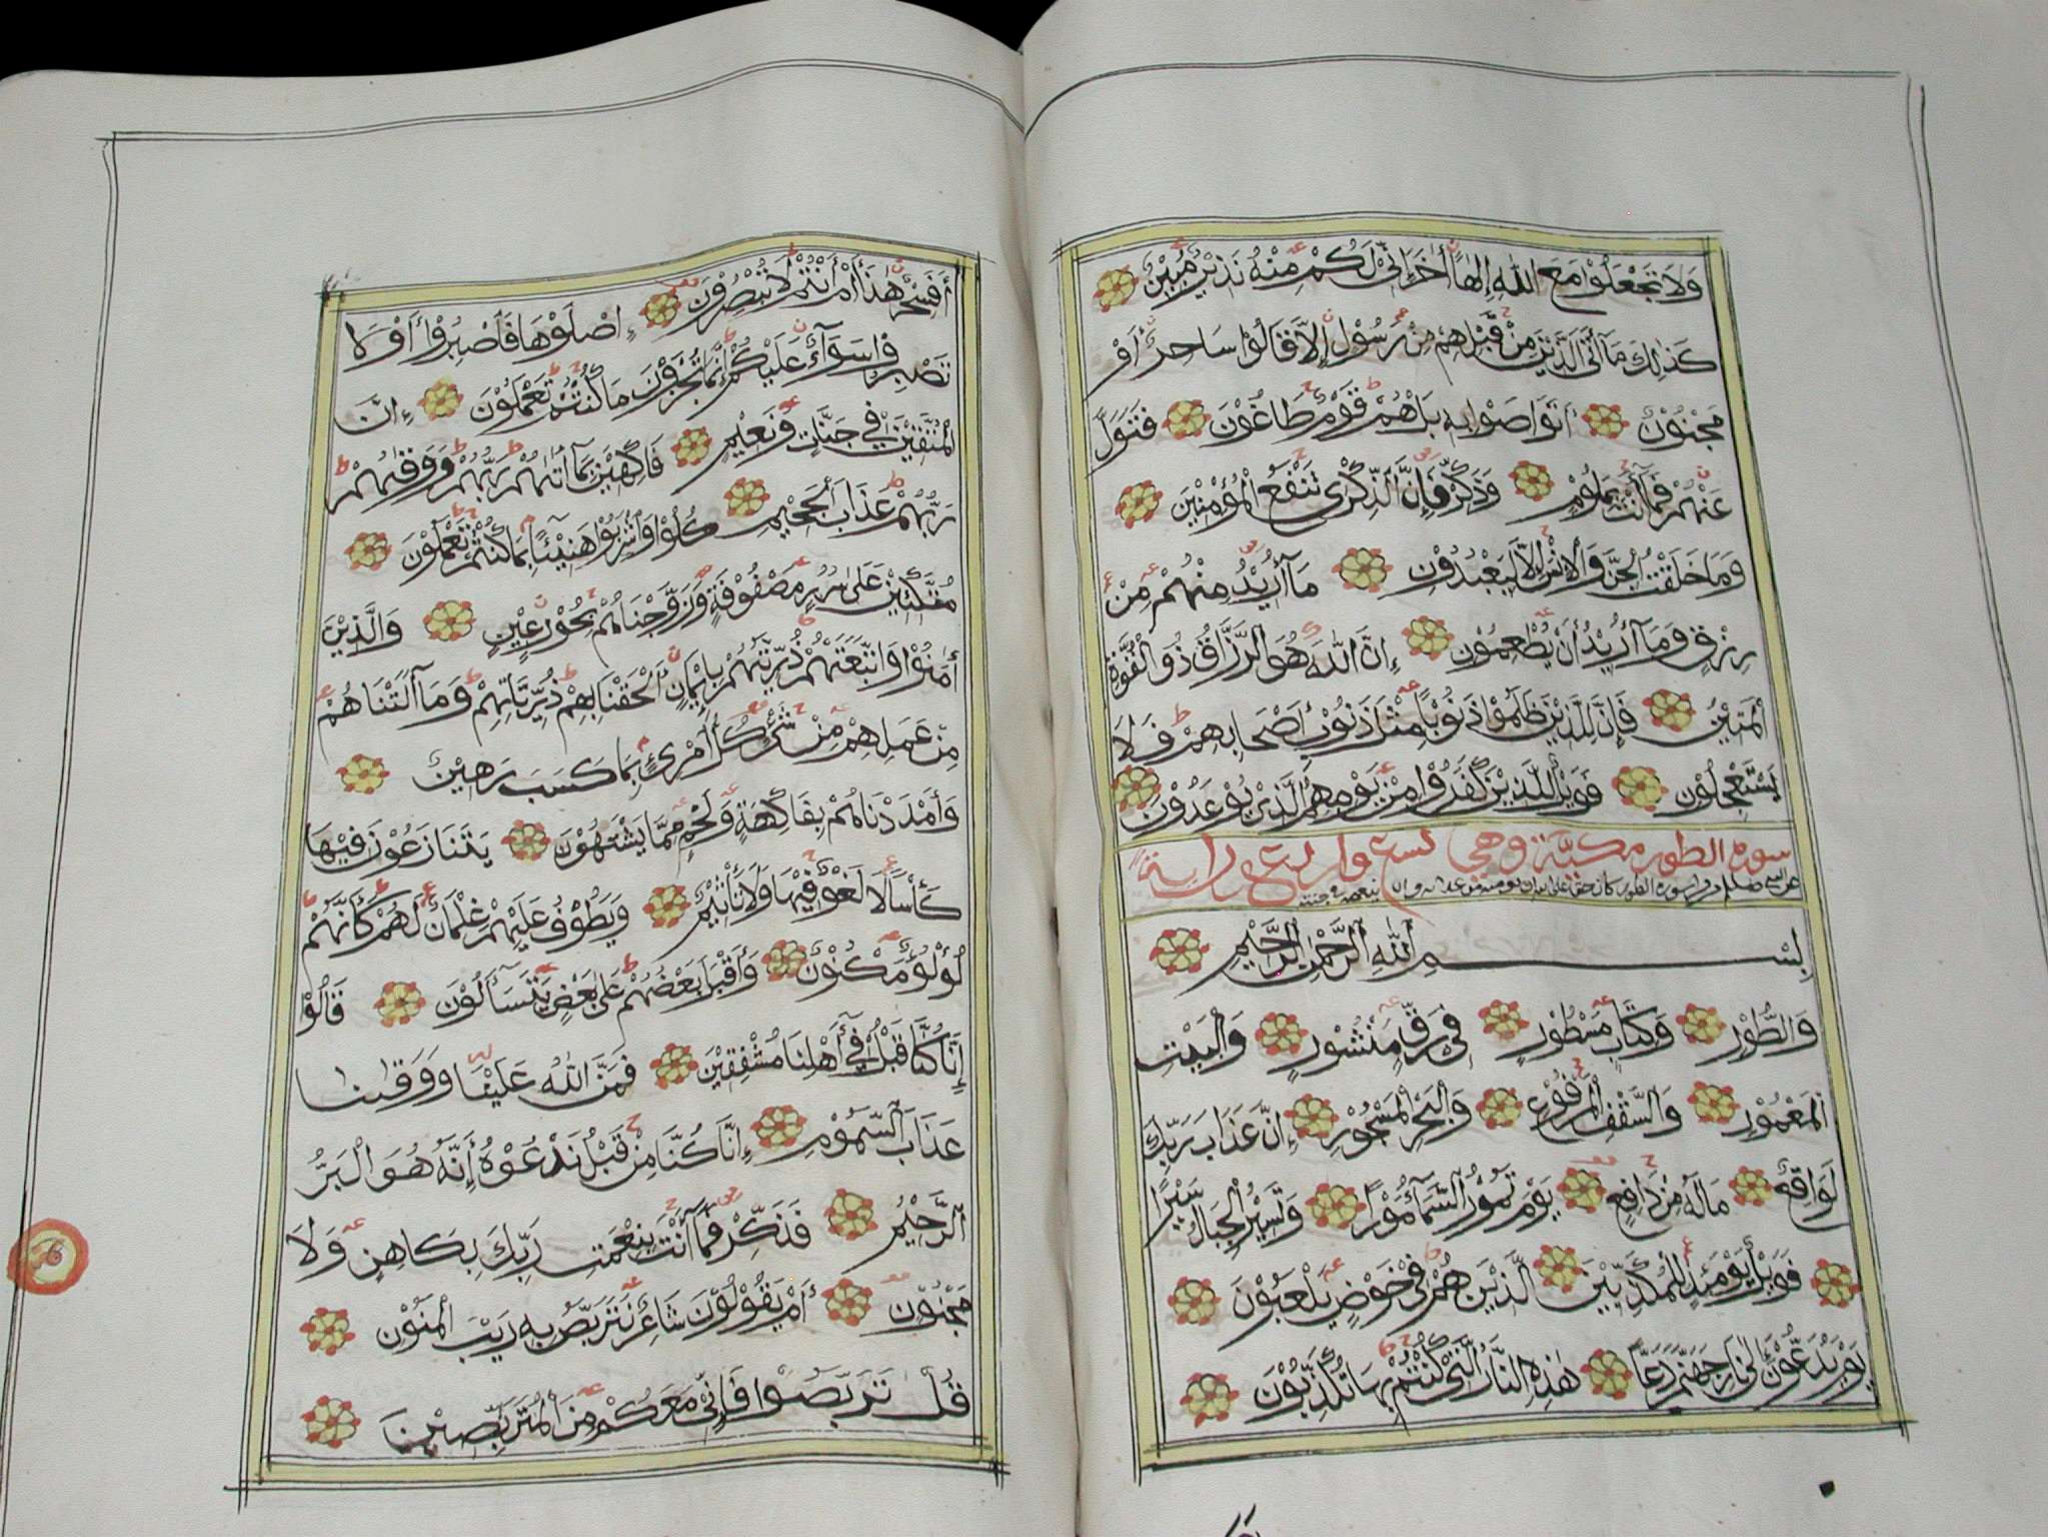 وَلَا تَجْعَلُوْا مَعَ اللّٰهِ اِلٰهًا اٰخَرَ اِنِّيْ لَكُمْ مِنْهُ نَذِيْرٌ مُبِيْنٌ
كَذٰلِكَ مَآ اَتَى الَّذِيْنَ مِنْ قَبْلِهِمْ مِنْ رَسُوْلٍ اِلَّا قَالُوْا سَاحِرٌ اَوْ
مَجْنُوْنٌ اَتَوَاصَوْا بِهٖ بَلْ هُمْ قَوْمٌ طَاغُوْنَ فَتَوَلَّ
عَنْهُمْ فَمَآ اَنْتَ بِمَلُوْمٍ وَذَكِّرْ فَاِنَّ الذِّكْرٰى تَنْفَعُ الْمُؤْمِنِيْنَ
وَمَا خَلَقْتُ الْجِنَّ وَالْاِنْسَ اِلَّا لِيَعْبُدُوْنِ مَآ اُرِيْدُ مِنْهُمْ مِنْ
رِزْقٍ وَمَآ اُرِيْدُ اَنْ يُطْعِمُوْنِ اِنَّ اللّٰهَ هُوَ الرَّزَّاقُ ذُو الْقُوَّةِ
الْمَتِيْنُ فَاِنَّ لِلَّذِيْنَ ظَلَمُوْا ذَنُوْبًا مِثْلَ ذَنُوْبِ اَصْحَابِهِمْ فَلَا
يَسْتَعْجِلُوْنِ فَوَيْلٌ لِلَّذِيْنَ كَفَرُوْا مِنْ يَوْمِهِمُ الَّذِيْ يُوْعَدُوْنَ
سورة الطور مكية وهي تسع واربعون اية
بِسْمِ اللّٰهِ الرَّحْمٰنِ الرَّحِيْمِ
وَالطُّوْرِ وَكِتَابٍ مَسْطُوْرٍ فِيْ رَقٍّ مَنْشُوْرٍ وَالْبَيْتِ
الْمَعْمُوْرِ وَالسَّقْفِ الْمَرْفُوْعِ وَالْبَحْرِ الْمَسْجُوْرِ اِنَّ عَذَابَ رَبِّكَ
لَوَاقِعٌ مَالَهُ مِنْ دَافِعٍ يَوْمَ تَمُوْرُ السَّمَآءُ مَوْرًا وَتَسِيْرُ الْجِبَالُ سَيْرًا
فَوَيْلٌ يَوْمَئِذٍ لِلْمُكَذِّبِيْنَ الَّذِيْنَ هُمْ فِيْ خَوْضٍ يَلْعَبُوْنَ
يَوْمَ يُدَعُّوْنَ اِلٰى نَارِ جَهَنَّمَ دَعًّا هٰذِهِ النَّارُ الَّتِيْ كُنْتُمْ بِهَا تُكَذِّبُوْنَ
اَفَسِحْرٌ هٰذَآ اَمْ اَنْتُمْ لَا تُبْصِرُوْنَ اِصْلَوْهَا فَاصْبِرُوْا اَوْ لَا
تَصْبِرُوْا سَوَآءٌ عَلَيْكُمْ اِنَّمَا تُجْزَوْنَ مَا كُنْتُمْ تَعْمَلُوْنَ اِنَّ
الْمُتَّقِيْنَ فِيْ جَنَّاتٍ وَنَعِيْمٍ فَاكِهِيْنَ بِمَآ اٰتٰىهُمْ رَبُّهُمْ وَوَقٰىهُمْ
رَبُّهُمْ عَذَابَ الْجَحِيْمِ كُلُوْا وَاشْرَبُوْا هَنِيْٓئًا بِمَا كُنْتُمْ تَعْمَلُوْنَ
مُتَّكِئِيْنَ عَلٰى سُرُرٍ مَصْفُوْفَةٍ وَزَوَّجْنَاهُمْ بِحُوْرٍ عِيْنٍ وَالَّذِيْنَ
اٰمَنُوْا وَاتَّبَعَتْهُمْ ذُرِّيَّتُهُمْ بِاِيْمَانٍ اَلْحَقْنَا بِهِمْ ذُرِّيَّاتِهِمْ وَمَآ اَلَتْنَاهُمْ
مِنْ عَمَلِهِمْ مِنْ شَيْءٍ كُلُّ امْرِئٍ بِمَا كَسَبَ رَهِيْنٌ
وَاَمْدَدْنَاهُمْ بِفَاكِهَةٍ وَلَحْمٍ مِمَّا يَشْتَهُوْنَ يَتَنَازَعُوْنَ فِيْهَا
كَأْسًا لَا لَغْوٌ فِيْهَا وَلَا تَأْثِيْمٌ وَيَطُوْفُ عَلَيْهِمْ غِلْمَانٌ لَهُمْ كَاَنَّهُمْ
لُؤْلُؤٌ مَكْنُوْنٌ وَاَقْبَلَ بَعْضُهُمْ عَلٰى بَعْضٍ يَتَسَآءَلُوْنَ قَالُوْا
اِنَّا كُنَّا قَبْلُ فِيْٓ اَهْلِنَا مُشْفِقِيْنَ فَمَنَّ اللّٰهُ عَلَيْنَا وَوَقٰىنَا
عَذَابَ السَّمُوْمِ اِنَّا كُنَّا مِنْ قَبْلُ نَدْعُوْهُ اِنَّهُ هُوَ الْبَرُّ
الرَّحِيْمُ فَذَكِّرْ فَمَآ اَنْتَ بِنِعْمَتِ رَبِّكَ بِكَاهِنٍ وَلَا
مَجْنُوْنٍ اَمْ يَقُوْلُوْنَ شَاعِرٌ نَتَرَبَّصُ بِهٖ رَيْبَ الْمَنُوْنِ
قُلْ تَرَبَّصُوْا فَاِنِّيْ مَعَكُمْ مِنَ الْمُتَرَبِّصِيْنَ